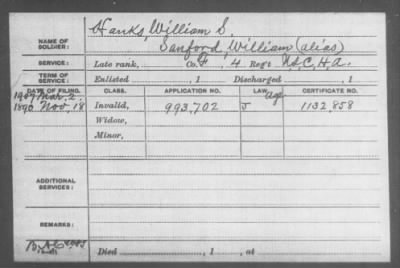 NAME OF SOLDIER: Hanks, William S.
Sanford, William (alias)
SERVICE: Late rank, Co. F, 4 Reg't U.S.C.H.A.
TERM OF SERVICE: Enlisted , 1 Discharged , 1
DATE OF FILING. CLASS. APPLICATION NO. LAW. CERTIFICATE NO.
1907 Mar. 2. age
1890 Nov. 18 Invalid, 993,702 J 1132,858
Widow,
Minor,
ADDITIONAL SERVICES:
REMARKS:
Died , 1 , at